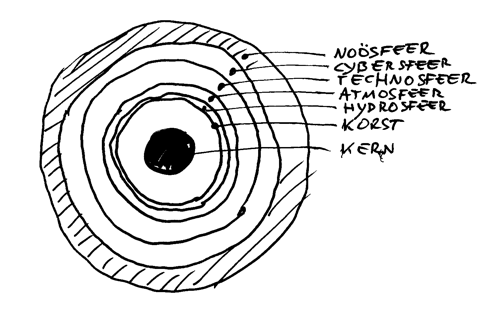 NOÖSFEER
CYBERSFEER
TECHNOSFEER
ATMOSFEER
HYDROSFEER
KORST
KERN